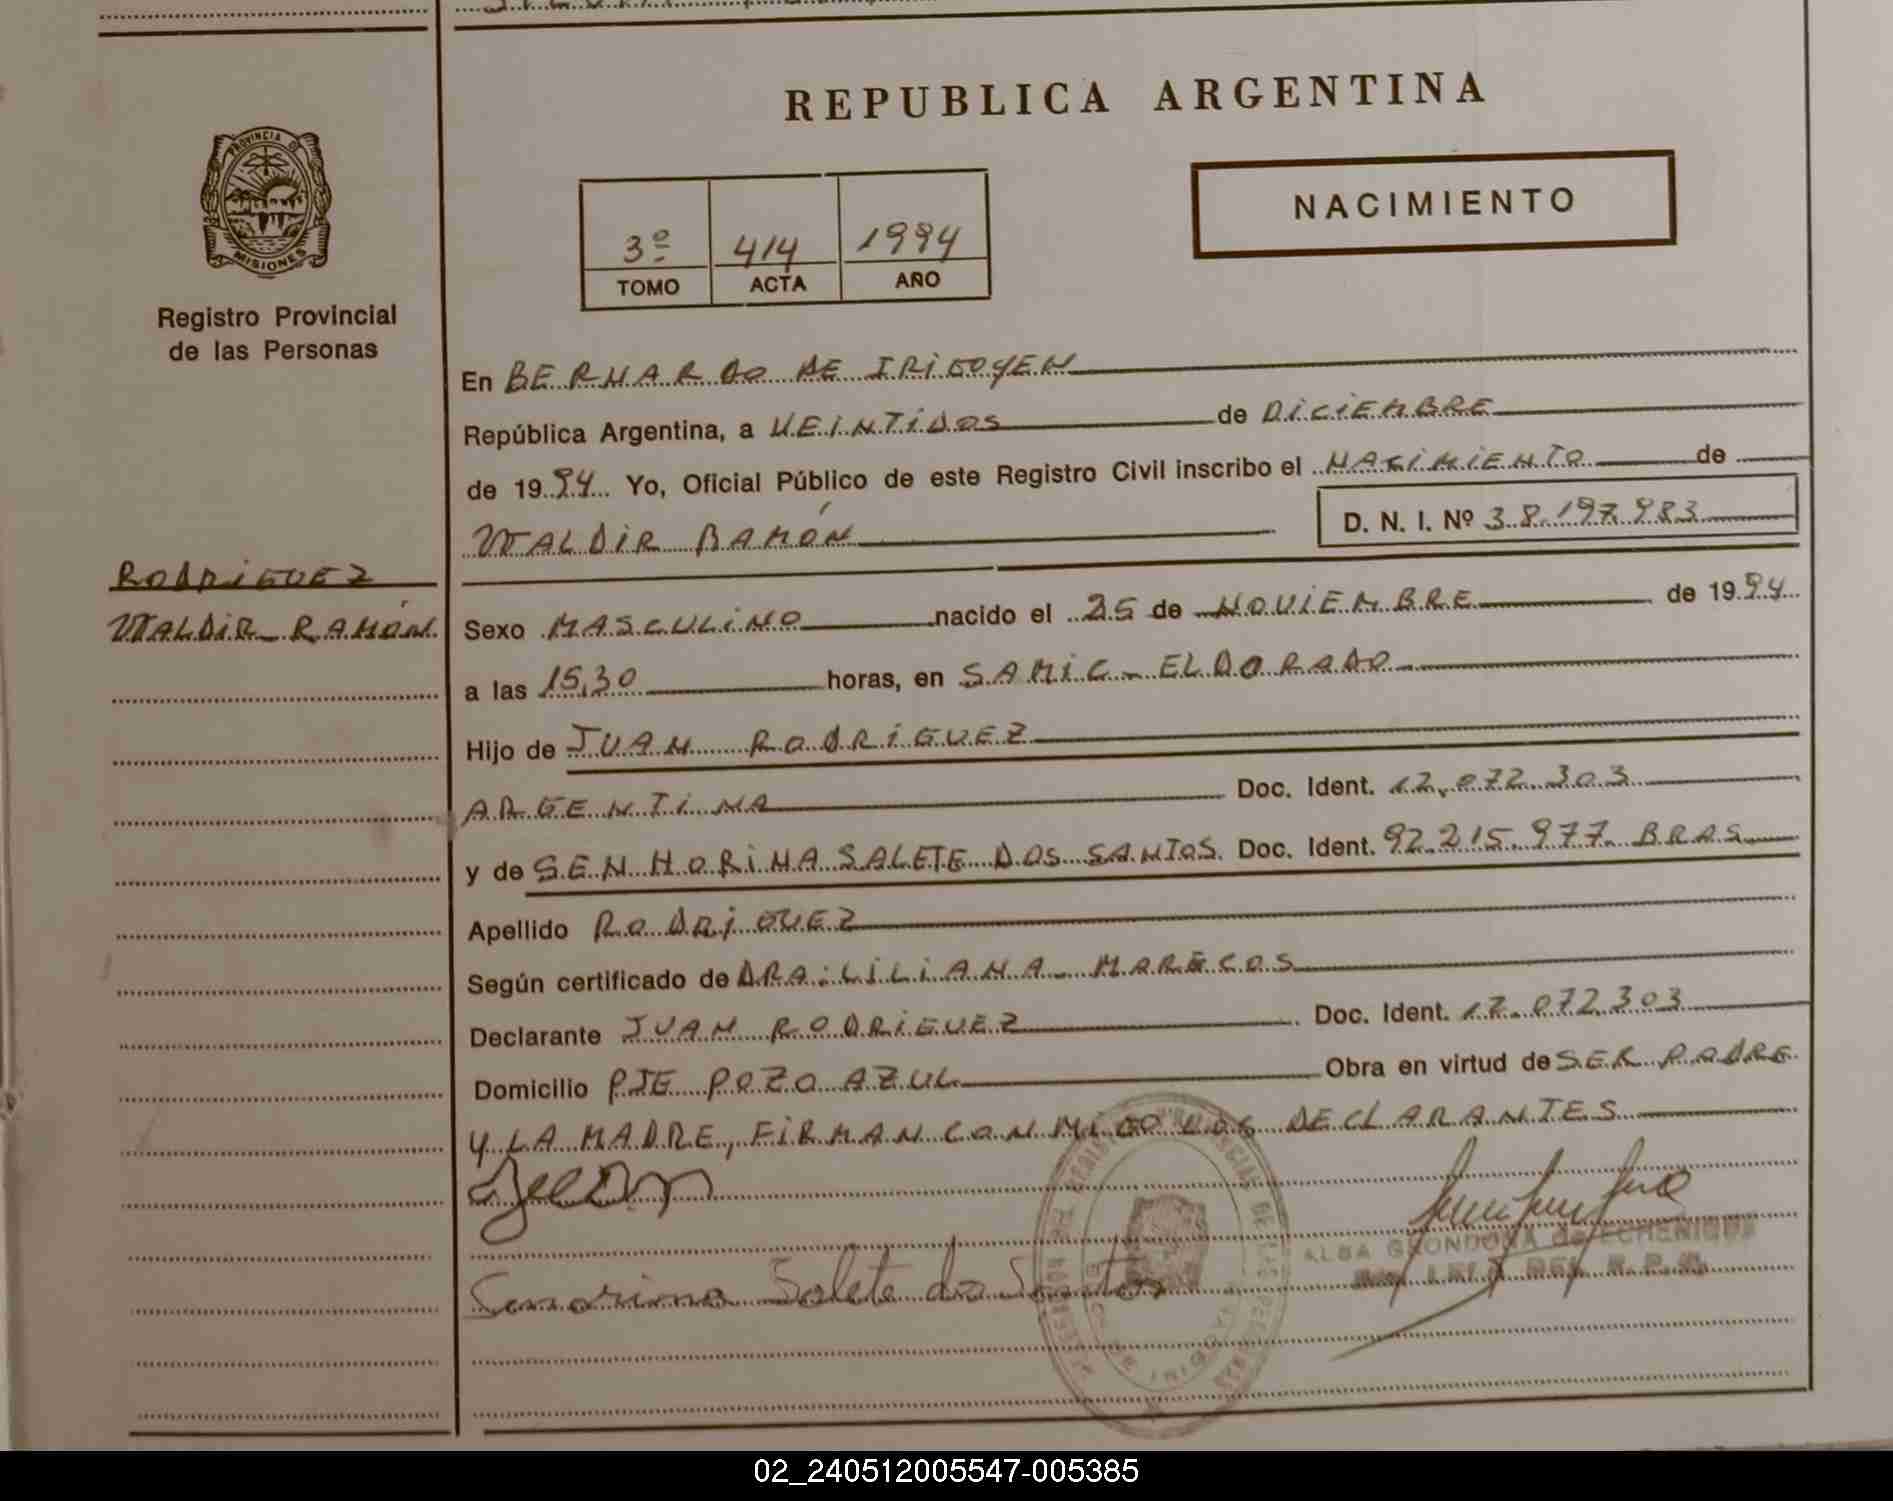 REPUBLICA ARGENTINA
PROVINCIA DE
MISIONES
Registro Provincial
de las Personas
3º 414 1994
TOMO ACTA AÑO
NACIMIENTO
En BERNARDO DE IRIGOYEN
República Argentina, a VEINTIDOS de DICIEMBRE
de 1994 Yo, Oficial Público de este Registro Civil inscribo el NACIMIENTO de
WALDIR RAMÓN D. N. I. Nº 38.197.983
RODRIGUEZ
WALDIR RAMÓN
Sexo MASCULINO nacido el 25 de NOVIEMBRE de 1994
a las 15,30 horas, en SAMIC - ELDORADO
Hijo de JUAN RODRIGUEZ
ARGENTINA Doc. Ident. 17.072.303
y de SENHORINA SALETE DOS SANTOS Doc. Ident. 92.215.977 BRAS
Apellido RODRIGUEZ
Según certificado de DRA. LILIANA MARECOS
Declarante JUAN RODRIGUEZ Doc. Ident. 17.072.303
Domicilio PJE POZO AZUL Obra en virtud de SER PADRE
Y LA MADRE, FIRMAN CONMIGO LOS DECLARANTES
Senorina Salete dos Santos
ALBA de ECHENIQUE
02_240512005547-005385